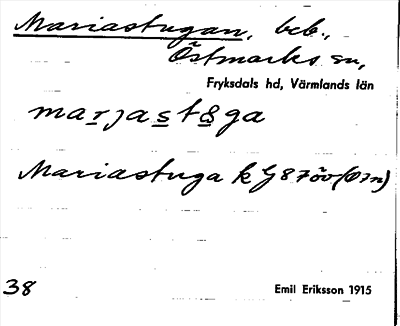 Mariastugan, beb.,
Östmarks sn,
Fryksdals hd, Värmlands län
marjast&ga
Mariastuga k G 87öv (Ö7n)
38 Emil Eriksson 1915